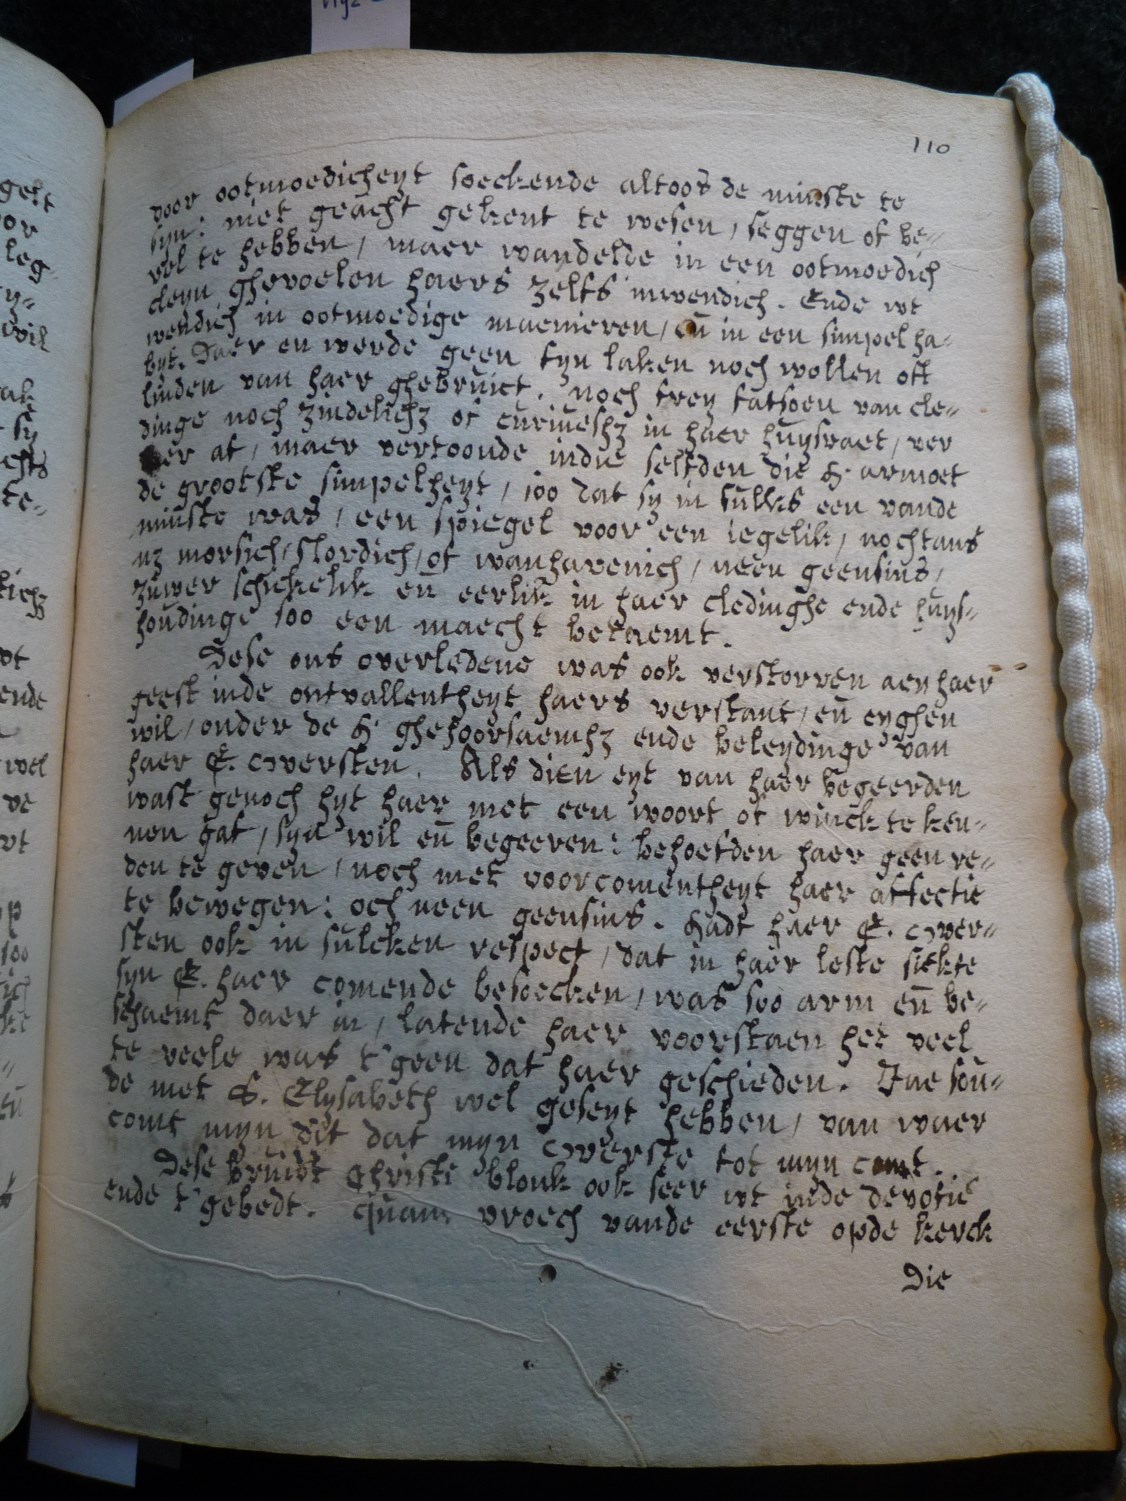 110
voor ootmoedicheyt soeckende altoos de minste te
syn: niet geacht gekent te wesen, seggen of be-
vel te hebben, maer wandelde in een ootmoedich
cleyn ghevoelen haers zelfs inwendich. Ende wt
wendich in ootmoedige maenieren, en̄ in een simpel ha-
byt. Daer en werde geen fyn laken noch wollen oft
linden van haer ghebruict. noch frey fatsoen van cle-
dinge noch zindelichz of curiueshz in haer huysraet, ver
er at, maer vertoonde indie selfden die H. armoet
de grootste simpelheyt, soo dat sy in sulks een vande
minste was, een spiegel voor een iegelik, nochtans
nz morsich, slordich, of wanhavenich, neen geensins,
zuwer schickelik en̄ eerlik in haer cledinghe ende huys-
houdinge soo een maecht betaemt.
Dese ons overledene was ook verstorven aen haer
geest inde ontvallentheyt haers verstant, en̄ eyghen
wil, onder de H. ghehoorsaemhz ende beleydinge van
haer E. Oversten. Als dien eyt van haer begeerden
wast genoch hyt haer met een woort of winck te ken-
nen gaf, syn wil en̄ begeeren: behoefden haer geen re-
den te geven, noch met voorcomentheyt haer affectie
te bewegen: och neen geensins. Hadt haer E. Over-
sten ook in sulcken respect, dat in haer leste siekte
syn E. haer comende besoecken, was soo arm en̄ be-
schaemt daer in, latende haer voorstaen het veel
te veele was t'geen dat haer geschieden. Jae sou-
de met S. Elysabeth wel geseyt hebben, van waer
comt myn dit dat myn Overste tot myn comt.
Dese Bruidt Christi blonk ook seer wt inde devotie
ende t'gebedt. Quam vroech vande eerste opde kerck
Die
gelt
vor
leg-
wil
ende
wel
ve
wt
soo